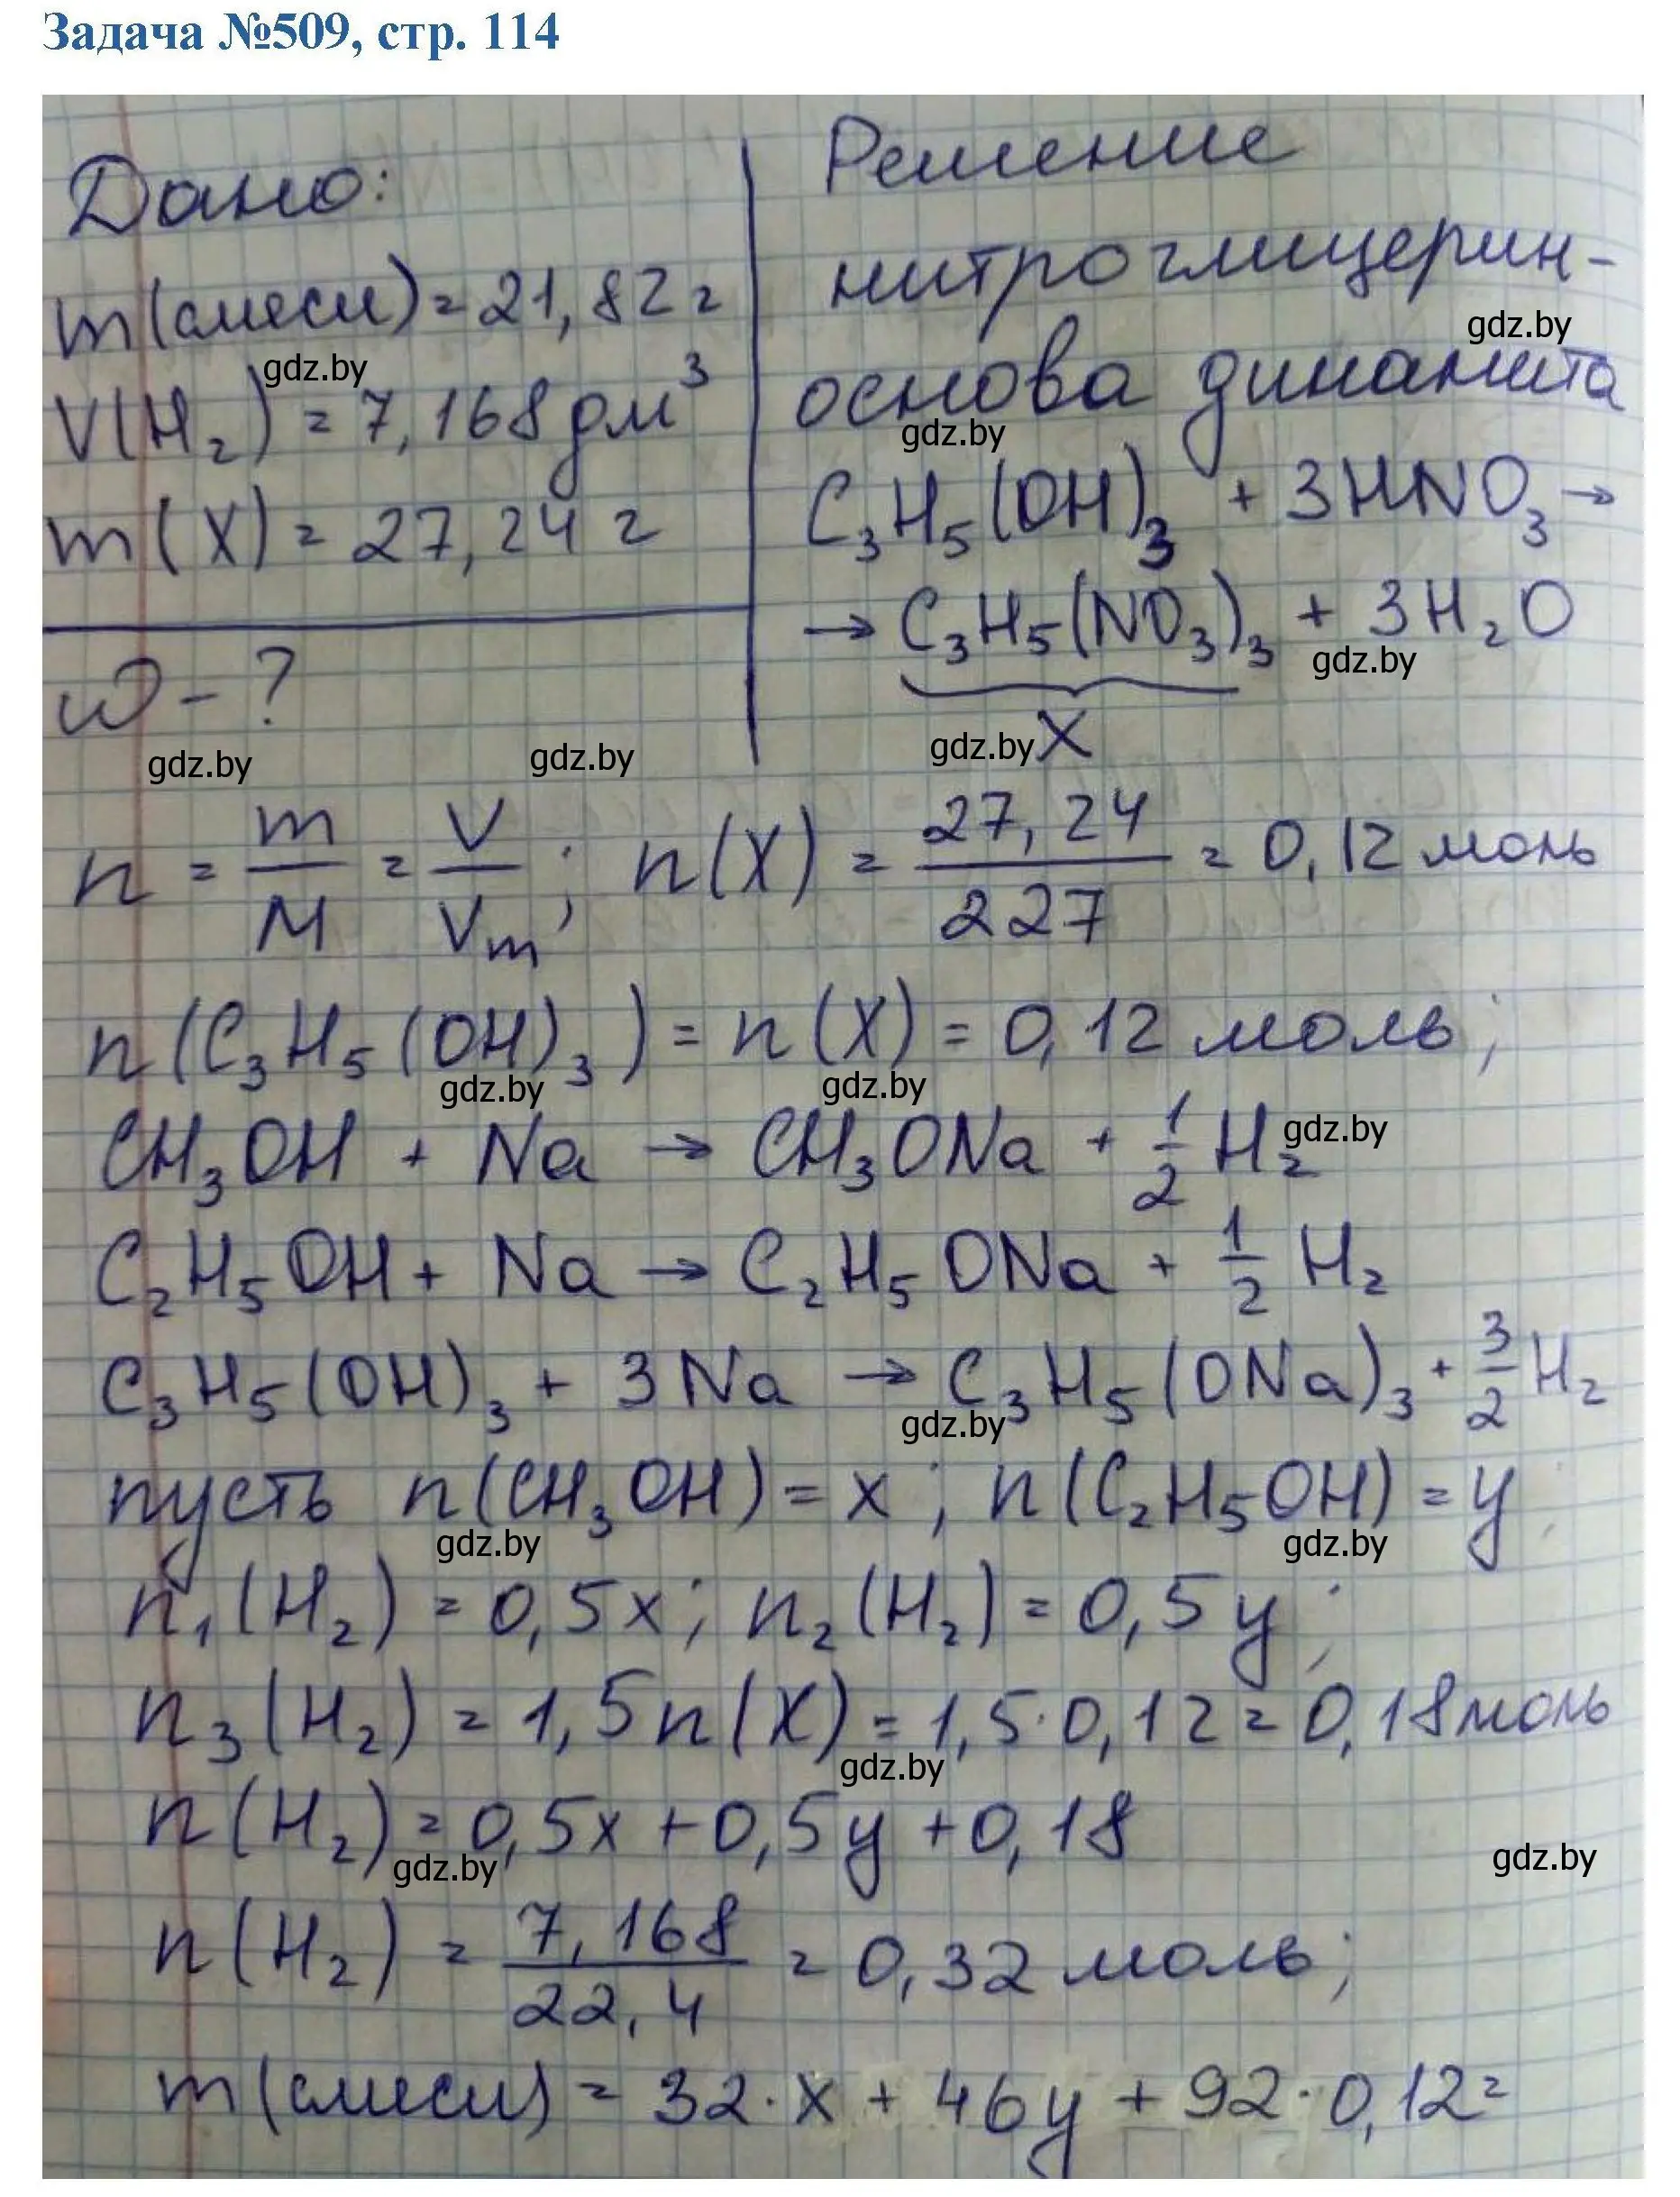 Задача №509, стр. 114
Дано:
m(смеси) = 21,82 г
gdz.by
V(H₂) = 7,168 дм³
m(X) = 27,24 г
ω - ?
gdz.by gdz.by
Решение
нитроглицерин -
gdz.by
основа динамита
gdz.by
C₃H₅(OH)₃ + 3HNO₃ →
→ C₃H₅(NO₃)₃ + 3H₂O
gdz.by
gdz.by X
n = m/M = V/Vm; n(X) = 27,24/227 = 0,12 моль
n(C₃H₅(OH)₃) = n(X) = 0,12 моль;
gdz.by gdz.by
CH₃OH + Na → CH₃ONa + 1/2 H₂ gdz.by
C₂H₅OH + Na → C₂H₅ONa + 1/2 H₂
C₃H₅(OH)₃ + 3Na → C₃H₅(ONa)₃ + 3/2 H₂
gdz.by
пусть n(CH₃OH) = x; n(C₂H₅OH) = y;
gdz.by gdz.by
n₁(H₂) = 0,5x; n₂(H₂) = 0,5y;
n₃(H₂) = 1,5n(X) = 1,5·0,12 = 0,18 моль
gdz.by
n(H₂) = 0,5x + 0,5y + 0,18
gdz.by gdz.by
n(H₂) = 7,168/22,4 = 0,32 моль;
m(смеси) = 32·x + 46y + 92·0,12 =